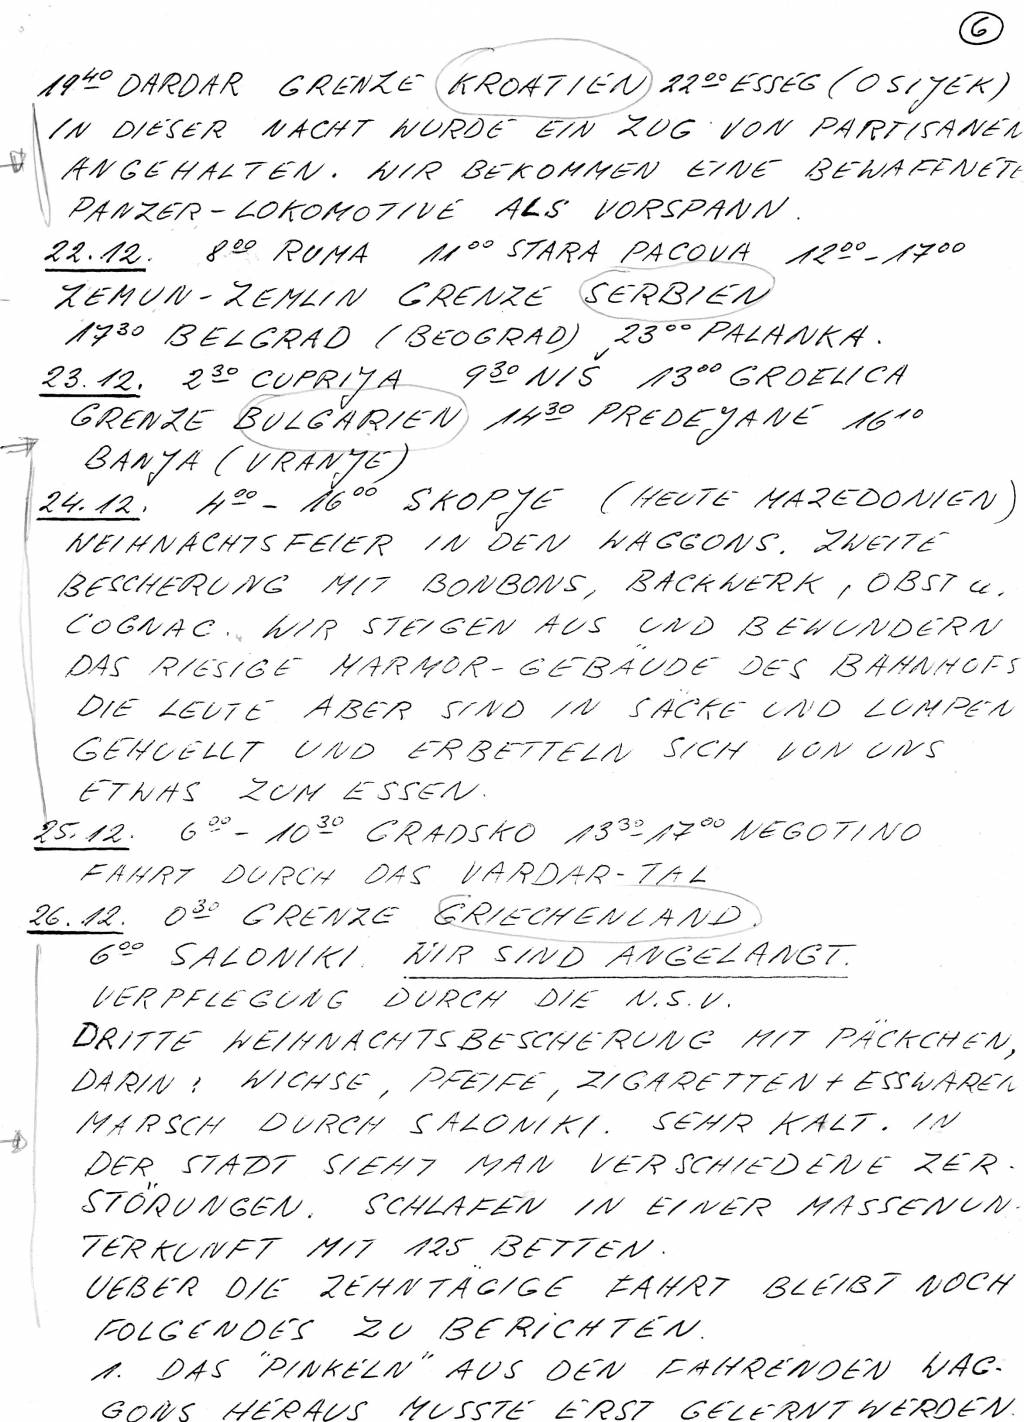 6
19⁴⁰ DARDAR GRENZE KROATIEN 22⁰⁰ ESSEG (OSIJEK)
IN DIESER NACHT WURDE EIN ZUG VON PARTISANEN
ANGEHALTEN. WIR BEKOMMEN EINE BEWAFFNETE
PANZER-LOKOMOTIVE ALS VORSPANN.
22.12. 8⁰⁰ RUMA 11⁰⁰ STARA PACOVA 12⁰⁰-17⁰⁰
ZEMUN-ZEMLIN GRENZE SERBIEN
17³⁰ BELGRAD (BEOGRAD), 23⁰⁰ PALANKA.
23.12. 2³⁰ CUPRIJA 9³⁰ NIŠ 13⁰⁰ GRDELICA
GRENZE BULGARIEN 14³⁰ PREDEJANE 16¹⁰
BANJA (VRANJE)
24.12. 4⁰⁰ - 16⁰⁰ SKOPJE (HEUTE MAZEDONIEN)
WEIHNACHTSFEIER IN DEN WAGGONS. ZWEITE
BESCHERUNG MIT BONBONS, BACKWERK, OBST u.
COGNAC. WIR STEIGEN AUS UND BEWUNDERN
DAS RIESIGE MARMOR-GEBÄUDE DES BAHNHOFS
DIE LEUTE ABER SIND IN SÄCKE UND LUMPEN
GEHUELLT UND ERBETTELN SICH VON UNS
ETWAS ZUM ESSEN.
25.12. 6⁰⁰ - 10³⁰ GRADSKO 13³⁰-17⁰⁰ NEGOTINO
FAHRT DURCH DAS VARDAR-TAL
26.12. 0³⁰ GRENZE GRIECHENLAND.
6⁰⁰ SALONIKI. WIR SIND ANGELANGT.
VERPFLEGUNG DURCH DIE N.S.V.
DRITTE WEIHNACHTSBESCHERUNG MIT PÄCKCHEN,
DARIN: WICHSE, PFEIFE, ZIGARETTEN + ESSWAREN
MARSCH DURCH SALONIKI. SEHR KALT. IN
DER STADT SIEHT MAN VERSCHIEDENE ZER-
STÖRUNGEN. SCHLAFEN IN EINER MASSENUN-
TERKUNFT MIT 125 BETTEN.
UEBER DIE ZEHNTÄGIGE FAHRT BLEIBT NOCH
FOLGENDES ZU BERICHTEN.
1. DAS "PINKELN" AUS DEN FAHRENDEN WAG-
GONS HERAUS MUSSTE ERST GELERNT WERDEN.